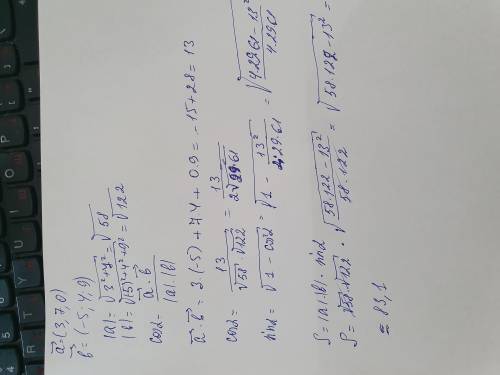 a⃗=(3,7,0)
b⃗=(-5,4,9)
|a|=√(3²+7²)=√58
|b|=√((-5)²+4²+9²)=√122
cosα= (a⃗·b⃗)/(|a|·|b|)
a⃗·b⃗=3(-5)+7·4+0·9=-15+28=13
cosα= 13/(√58·√122) = 13/(2√29·61)
sinα=√(1-cos²α)=√(1-13²/(4·29·61))=√((4·29·61-13²)/(4·29·61))
S=|a|·|b|·sinα
S=√58·√122·√((58·122-13²)/(58·122))=√(58·122-13²)=
≈83,1